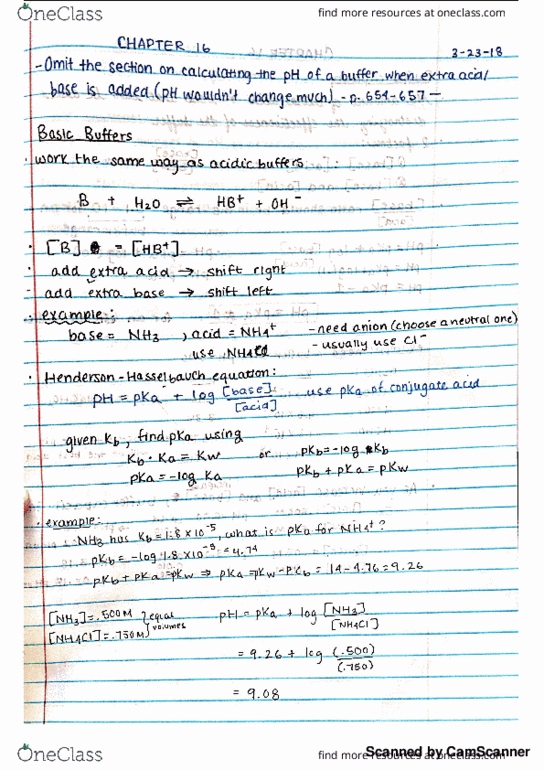 OneClass find more resources at oneclass.com
CHAPTER 16
3-23-18
- Omit the section on calculating the pH of a buffer when extra acid/
base is added (pH wouldn't change much) - p. 654-657 -
Basic Buffers
· work the same way as acidic buffers
B + H2O ⇌ HB+ + OH-
· [B] = [HB+]
· add extra acid → shift right
- add extra base → shift left
· example:
base = NH3 , acid = NH4+ - need anion (choose a neutral one)
use NH4Cl - usually use Cl-
· Henderson-Hasselbauch equation:
pH = pKa + log [base]/[acid] use pKa of conjugate acid
given Kb, find pKa using
Kb · Ka = Kw or pKb = -log Kb
pKa = -log Ka pKb + pKa = pKw
· example:
NH3 has Kb = 1.8 x 10-5, what is pKa for NH4+?
pKb = -log 1.8 x 10-5 = 4.74
pKb + pKa = pKw ⇒ pKa = pKw - pKb = 14 - 4.76 = 9.26
[NH3] = .500M } equal volumes pH = pKa + log [NH3]/[NH4Cl]
[NH4Cl] = .750M
= 9.26 + log (.500)/(.750)
= 9.08
Scanned by CamScanner
OneClass find more resources at oneclass.com